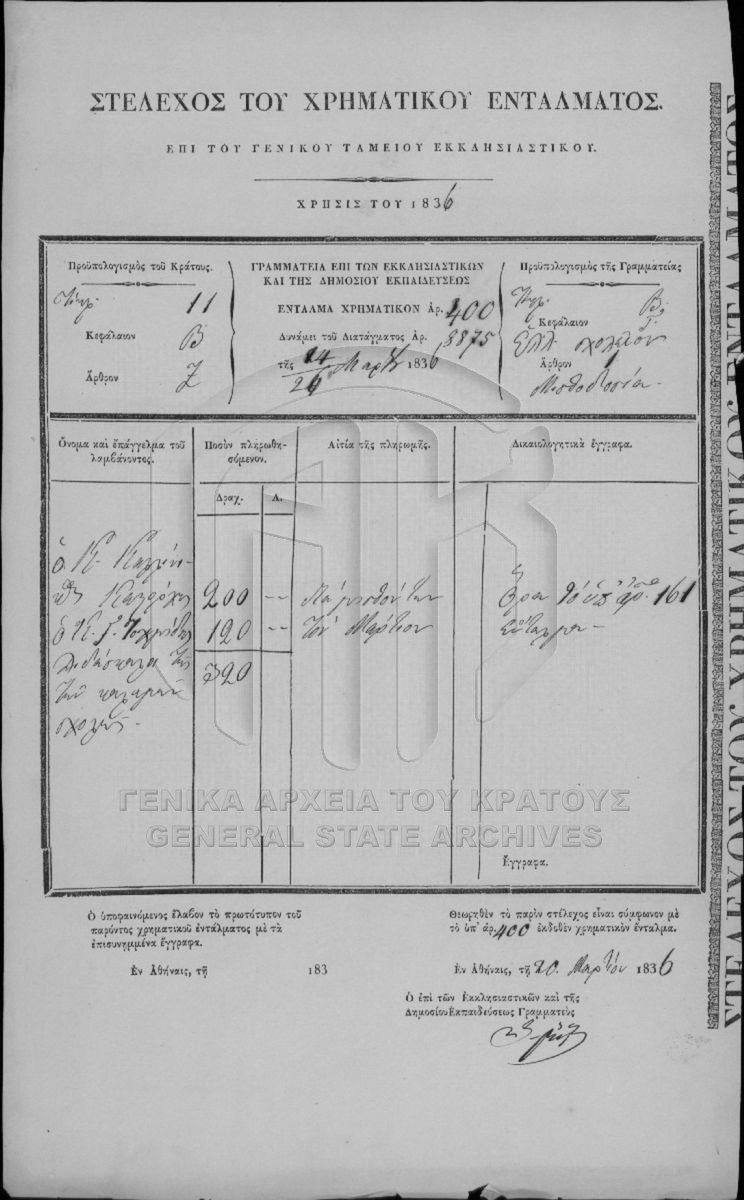 ΣΤΕΛΕΧΟΣ ΤΟΥ ΧΡΗΜΑΤΙΚΟΥ ΕΝΤΑΛΜΑΤΟΣ.
ΕΠΙ ΤΟΥ ΓΕΝΙΚΟΥ ΤΑΜΕΙΟΥ ΕΚΚΛΗΣΙΑΣΤΙΚΟΥ.
ΧΡΗΣΙΣ ΤΟΥ 1836
Προϋπολογισμὸς τοῦ Κράτους.
11
Κεφάλαιον Β
Ἄρθρον Ζ
ΓΡΑΜΜΑΤΕΙΑ ΕΠΙ ΤΩΝ ΕΚΚΛΗΣΙΑΣΤΙΚΩΝ
ΚΑΙ ΤΗΣ ΔΗΜΟΣΙΟΥ ΕΚΠΑΙΔΕΥΣΕΩΣ
ΕΝΤΑΛΜΑ ΧΡΗΜΑΤΙΚΟΝ Ἀρ. 400
Δυνάμει τοῦ Διατάγματος Ἀρ. 8875
τῆς 14/26 Μαρτ 1836
Προϋπολογισμὸς τῆς Γραμματείας
Β
Κεφάλαιον
Ἑλλ. σχολεῖον
Ἄρθρον 1
Μισθοδοσία
Ὄνομα καὶ ἐπάγγελμα τοῦ
λαμβάνοντος.
Ποσὸν πληρωθη-
σόμενον.
Αἰτία τῆς πληρωμῆς.
Δικαιολογητικὰ ἔγγραφα.
Δραχ. Λ.
ὁ Κ.
200 -- μισθόν των ἀρ. 161
ὁ Κ. 120 -- τὸν Μάρτιον ἔνταλμα
320
Ἔγγραφα.
Ὁ ὑποφαινόμενος ἔλαβον τὸ πρωτότυπον τοῦ
παρόντος χρηματικοῦ ἐντάλματος μὲ τὰ
ἐπισυνημμένα ἔγγραφα.
Ἐν Ἀθήναις, τῇ 183
Θεωρηθὲν τὸ παρὸν στέλεχος εἶναι σύμφωνον μὲ
τὸ ὑπ' ἀρ. 400 ἐκδοθὲν χρηματικὸν ἔνταλμα.
Ἐν Ἀθήναις, τῇ 20 Μαρτίου 1836
Ὁ ἐπὶ τῶν Ἐκκλησιαστικῶν καὶ τῆς
Δημοσίου Ἐκπαιδεύσεως Γραμματεὺς
ΓΕΝΙΚΑ ΑΡΧΕΙΑ ΤΟΥ ΚΡΑΤΟΥΣ
GENERAL STATE ARCHIVES
ΣΤΕΛΕΧΟΣ ΤΟΥ ΧΡΗΜΑΤΙΚΟΥ ΕΝΤΑΛΜΑΤΟΣ